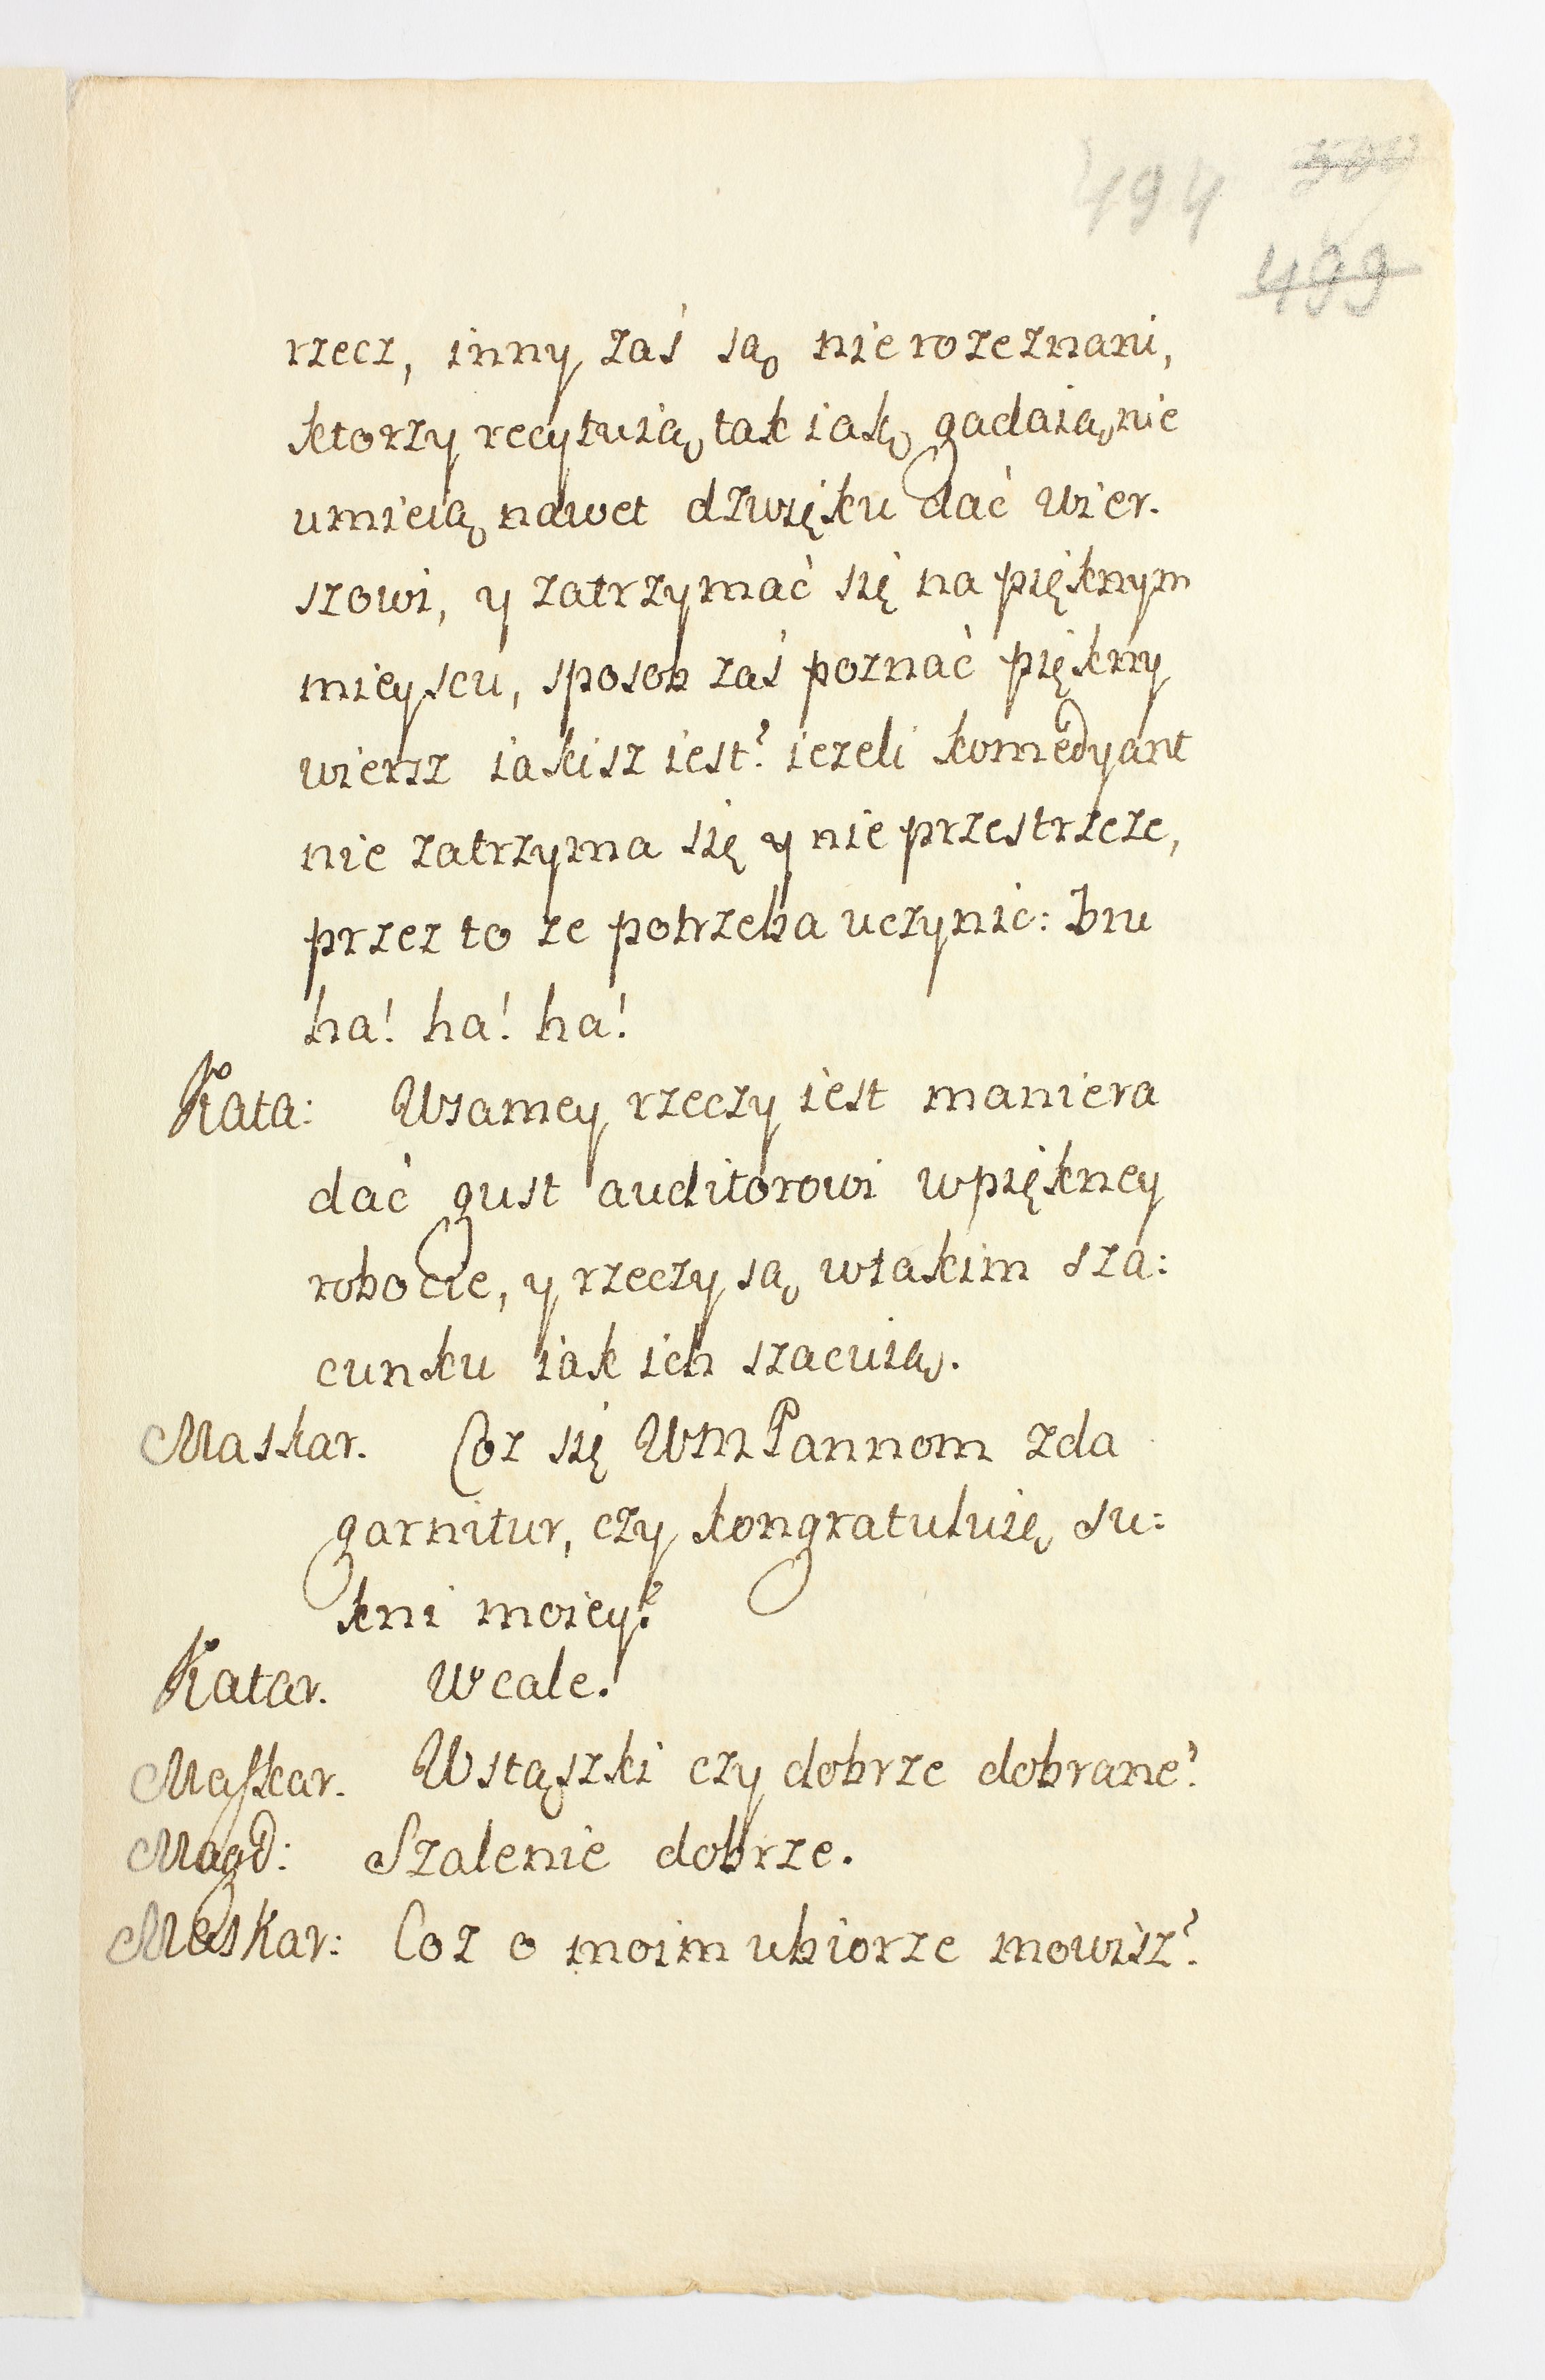 494 500
499
rzecz, inny zaś są nierozeznani,
ktorzy recytuią tak iak gadaią nie
umieią nawet dzwięku dać wier.
szowi, y zatrzymać się na pięknym
mieyscu, sposob zaś poznać piękny
wiersz iakisz iest? iezeli komedyant
nie zatrzyma się y nie przestrzeze,
przez to ze potrzeba uczynic: bru
ha! ha! ha!
Kata: Wsamey rzeczy iest maniera
dać gust auditorowi wpiękney
robocie, y rzeczy są wtakim sza:
cunku iak ich szacuią.
Maskar. Coz się WMPannom zda
garnitur, czy kongratuluię su:
kni moiey?
Katar. Wcale.
Maskar. Wstąszki czy dobrze dobrane?
Magd: Szalenie dobrze.
Maskar: Coz o moim ubiorze mowisz?